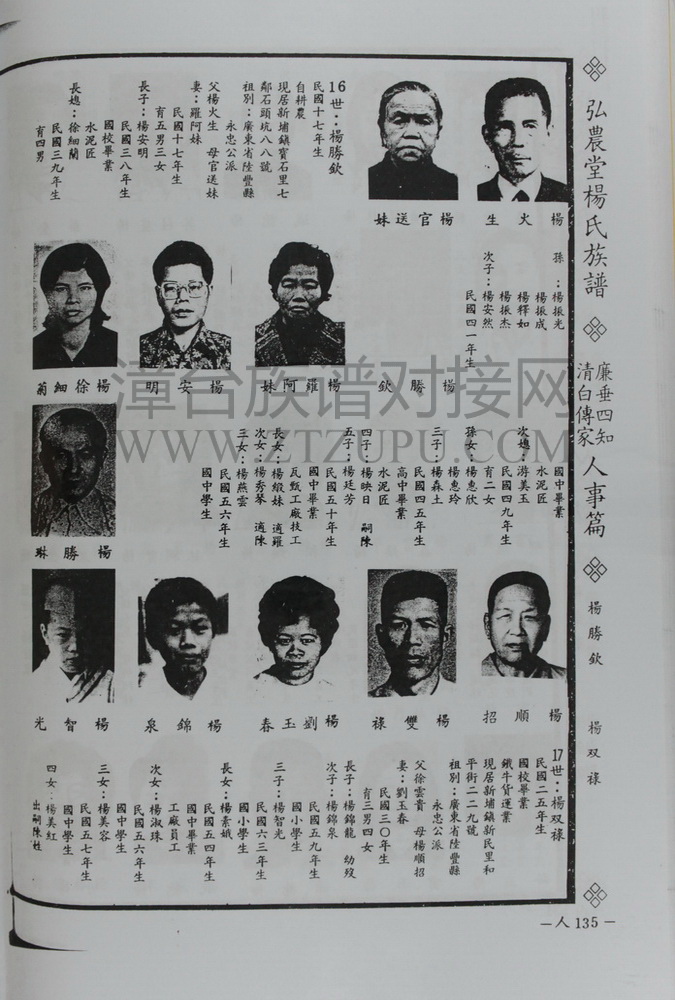 弘農堂楊氏族譜
廉垂四知
清白傳家
人事篇
楊勝欽
楊双祿
楊火生
楊官送妹
16世：楊勝欽
民國十七年生
自耕農
現居新埔鎮寶石里七
鄰石頭坑八八號
祖別：廣東省陸豐縣
永忠公派
父楊火生 母官送妹
妻：羅阿妹
民國十七年生
育五男三女
長子：楊安明
民國三八年生
國校畢業
水泥匠
長媳：徐細蘭
民國三九年生
育四男
孫：楊振光
楊振成
楊釋如
楊振杰
次子：楊安然
民國四一年生
楊勝欽
楊羅阿妹
楊安明
楊徐細菊
國中畢業
水泥匠
次媳：游美玉
民國四九年生
育二女
孫女：楊惠欣
楊惠玲
三子：楊森土
民國四五年生
高中畢業
水泥匠
四子：楊映日 嗣陳
五子：楊廷芳
民國五十年生
國中畢業
瓦甄工廠技工
長女：楊緞妹 適羅
次女：楊秀琴 適陳
三女：楊燕雲
民國五六年生
國中學生
楊勝琳
楊順招
楊雙祿
楊劉玉春
楊錦泉
楊智光
17世：楊双祿
民國二五年生
國校畢業
鐵牛貨運業
現居新埔鎮新民里和
平街二二九號
祖別：廣東省陸豐縣
永忠公派
父徐雲貴 母楊順招
妻：劉玉春
民國三〇年生
育三男四女
長子：楊錦龍 幼歿
次子：楊錦泉
民國五九年生
國小學生
三子：楊智光
民國六三年生
國小學生
長女：楊素娥
民國五四年生
國中畢業
工廠員工
次女：楊淑珠
民國五六年生
國中學生
三女：楊美容
民國五七年生
國中學生
四女：楊美紅
出嗣陳姓
漳台族谱对接网
WWW.ZTZUPU.COM
－人135－